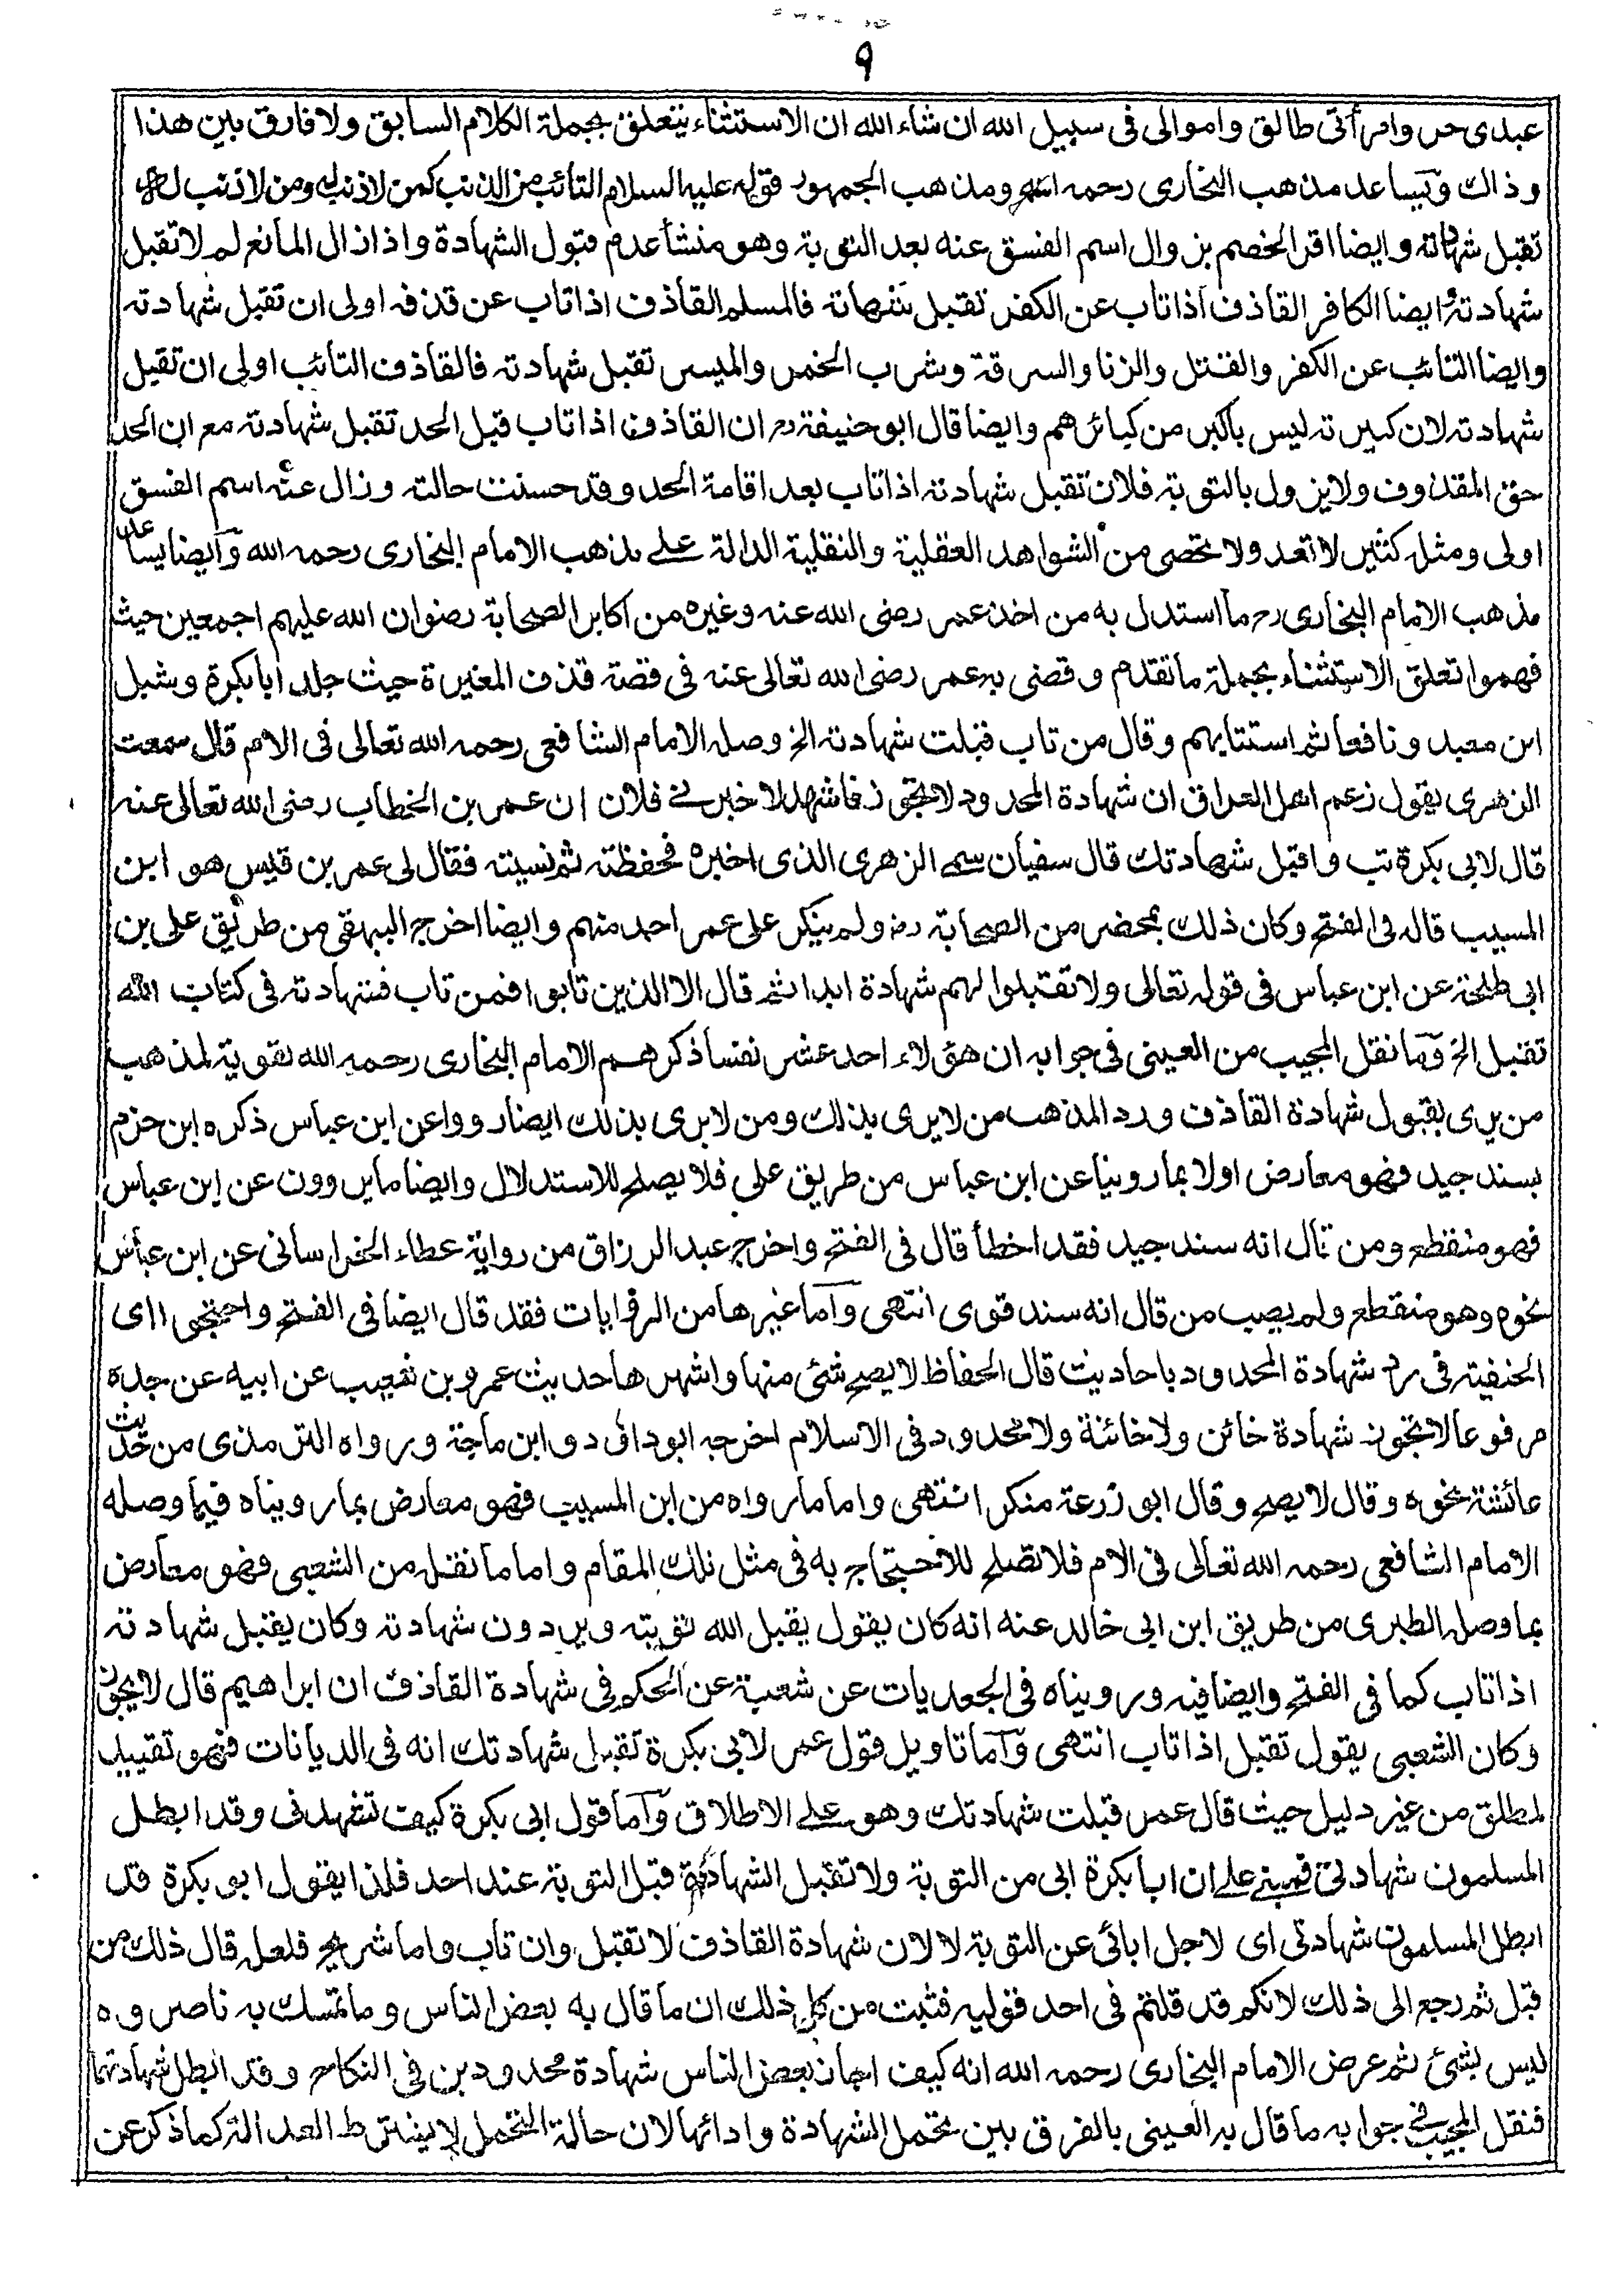 ٩
عبدى حر وامرأتى طالق واموالى فى سبيل الله ان شاء الله ان الاستثناء يتعلق بجملة الكلام السابق ولا فارق بين هذا
وذاك ويساعد مذهب البخارى رحمه الله ومذهب الجمهور قوله عليه السلام التائب من الذنب كمن لا ذنب له ومن لا ذنب له
تقبل شهادته وايضا اقر الخصم بزوال اسم الفسق عنه بعد التوبة وهو منشأ عدم قبول الشهادة واذا زال المانع لم لا تقبل
شهادته وايضا الكافر القاذف اذا تاب عن الكفر تقبل شهادته فالمسلم القاذف اذا تاب عن قذفه اولى ان تقبل شهادته
وايضا التائب عن الكفر والقتل والزنا والسرقة وشرب الخمر والميسر تقبل شهادته فالقاذف التائب اولى ان تقبل
شهادته لان كبيرته ليس باكبر من كبائرهم وايضا قال ابو حنيفة رح ان القاذف اذا تاب قبل الحد تقبل شهادته مع ان الحد
حق المقذوف ولا يزول بالتوبة فلان تقبل شهادته اذا تاب بعد اقامة الحد وقد حسنت حالته وزال عنه اسم الفسق
اولى ومثله كثير لا تعد ولا تحصى من الشواهد العقلية والنقلية الدالة على مذهب الامام البخارى رحمه الله وايضا يساعد
مذهب الامام البخارى رح ما استدل به من اخذ عمر رضى الله عنه وغيره من اكابر الصحابة رضوان الله عليهم اجمعين حيث
فهموا تعلق الاستثناء بجملة ما تقدم وقضى به عمر رضى الله تعالى عنه فى قصة قذف المغيرة حيث جلد ابا بكرة وشبل
ابن معبد ونافعا ثم استتابهم وقال من تاب قبلت شهادته الخ وصله الامام الشافعى رحمه الله تعالى فى الام قال سمعت
الزهرى يقول زعم اهل العراق ان شهادة المحدود لا تجوز فاشهد لاخبرنى فلان ان عمر بن الخطاب رضى الله تعالى عنه
قال لابى بكرة تب واقبل شهادتك قال سفيان سمى الزهرى الذى اخبره فحفظته ثم نسيته فقال لى عمر بن قيس هو ابن
المسيب قاله فى الفتح وكان ذلك بمحضر من الصحابة رض ولم ينكر على عمر احد منهم وايضا اخرج البيهقى من طريق على بن
ابى طلحة عن ابن عباس فى قوله تعالى ولا تقبلوا لهم شهادة ابدا ثم قال الا الذين تابوا فمن تاب فشهادته فى كتاب الله
تقبل الخ وما نقل المجيب من العينى فى جوابه ان هؤلاء احد عشر نفسا ذكرهم الامام البخارى رحمه الله تقوية لمذهب
من يرى بقبول شهادة القاذف ورد المذهب من لا يرى بذلك ومن لا يرى بذلك ايضا رووا عن ابن عباس ذكره ابن حزم
بسند جيد فهو معارض اولا بما روينا عن ابن عباس من طريق على فلا يصلح للاستدلال وايضا ما يروون عن ابن عباس
فهو منقطع ومن قال انه سند جيد فقد اخطأ قال فى الفتح واخرج عبد الرزاق من رواية عطاء الخراسانى عن ابن عباس
نحوه وهو منقطع ولم يصب من قال انه سند قوى انتهى واما غيرها من الروايات فقد قال ايضا فى الفتح واحتجوا اى
الحنفية فى رد شهادة المحدود باحاديث قال الحفاظ لا يصح شئ منها واشهرها حديث عمرو بن شعيب عن ابيه عن جده
مرفوعا لا تجوز شهادة خائن ولا خائنة ولا محدود فى الاسلام اخرجه ابو داؤد وابن ماجة ورواه الترمذى من حديث
عائشة نحوه وقال لا يصح وقال ابو زرعة منكر انتهى واما ما رواه من ابن المسيب فهو معارض بما رويناه فيما وصله
الامام الشافعى رحمه الله تعالى فى الام فلا تصلح للاحتجاج به فى مثل ذلك المقام واما ما نقل من الشعبى فهو معارض
بما وصله الطبرى من طريق ابن ابى خالد عنه انه كان يقول يقبل الله توبته ويردون شهادته وكان يقبل شهادته
اذا تاب كما فى الفتح وايضا فيه ورويناه فى الجعديات عن شعبة عن الحكم فى شهادة القاذف ان ابراهيم قال لا يجوز
وكان الشعبى يقول تقبل اذا تاب انتهى واما تاويل قول عمر لابى بكرة تقبل شهادتك انه فى الديانات فهو تقييد
لمطلق من غير دليل حيث قال عمر قبلت شهادتك وهو على الاطلاق واما قول ابى بكرة كيف تشهدنى وقد ابطل
المسلمون شهادتى فمبنى على ان ابا بكرة ابى من التوبة ولا تقبل الشهادة قبل التوبة عند احد فلذا يقول ابو بكرة قد
ابطل المسلمون شهادتى اى لاجل ابائى عن التوبة لا لان شهادة القاذف لا تقبل وان تاب واما شريح فلعله قال ذلك من
قبل ثم رجع الى ذلك لانكم قد قلتم فى احد قوليه فثبت من كل ذلك ان ما قال به بعض الناس وما تمسك به ناصروه
ليس بشئ ثم عرض الامام البخارى رحمه الله انه كيف اجاز بعض الناس شهادة محدودين فى النكاح وقد ابطل شهادتهما
فنقل المجيب فى جوابه ما قال به العينى بالفرق بين تحمل الشهادة وادائها لان حالة التحمل لا يشترط العدالة كما ذكر عن